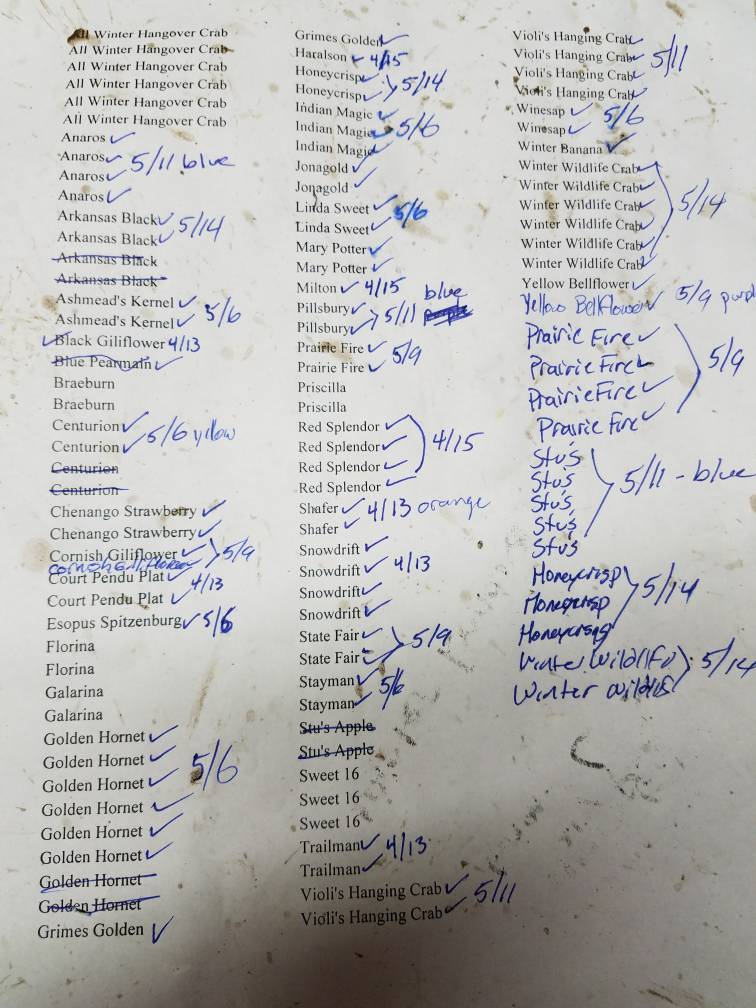 All Winter Hangover Crab
All Winter Hangover Crab
All Winter Hangover Crab
All Winter Hangover Crab
All Winter Hangover Crab
All Winter Hangover Crab
Anaros ✓
Anaros ✓ 5/11 blue
Anaros ✓
Anaros ✓
Arkansas Black ✓ 5/14
Arkansas Black ✓
Arkansas Black
Arkansas Black
Ashmead's Kernel ✓
Ashmead's Kernel ✓ 5/6
✓ Black Giliflower 4/13
Blue Pearmain ✓
Braeburn
Braeburn
Centurion ✓
Centurion ✓ 5/6 yellow
Centurion
Centurion
Chenango Strawberry ✓
Chenango Strawberry ✓
Cornish Giliflower ✓ 5/9
Cornish Giliflower
Court Pendu Plat ✓ 4/13
Court Pendu Plat ✓
Esopus Spitzenburg ✓ 5/6
Florina
Florina
Galarina
Galarina
Golden Hornet ✓
Golden Hornet ✓
Golden Hornet ✓ 5/6
Golden Hornet ✓
Golden Hornet ✓
Golden Hornet ✓
Golden Hornet
Golden Hornet
Grimes Golden ✓
Grimes Golden ✓
Haralson ✓ 4/15
Honeycrisp ✓ 5/14
Honeycrisp ✓
Indian Magic ✓
Indian Magic ✓ 5/6
Indian Magic ✓
Jonagold ✓
Jonagold ✓
Linda Sweet ✓ 5/6
Linda Sweet ✓
Mary Potter ✓
Mary Potter ✓
Milton ✓ 4/15
Pillsbury ✓ 5/11 blue
Pillsbury ✓
Prairie Fire ✓ 5/9
Prairie Fire ✓
Priscilla
Priscilla
Red Splendor ✓
Red Splendor ✓ 4/15
Red Splendor ✓
Red Splendor ✓
Shafer ✓ 4/13 orange
Shafer ✓
Snowdrift ✓
Snowdrift ✓ 4/13
Snowdrift ✓
Snowdrift ✓
State Fair ✓ 5/9
State Fair ✓
Stayman ✓ 5/6
Stayman ✓
Stu's Apple
Stu's Apple
Sweet 16
Sweet 16
Sweet 16
Trailman ✓ 4/13
Trailman ✓
Violi's Hanging Crab ✓ 5/11
Violi's Hanging Crab ✓
Violi's Hanging Crab ✓
Violi's Hanging Crab ✓ 5/11
Violi's Hanging Crab ✓
Violi's Hanging Crab ✓
Winesap ✓ 5/6
Winesap ✓
Winter Banana ✓
Winter Wildlife Crab ✓
Winter Wildlife Crab ✓
Winter Wildlife Crab ✓ 5/14
Winter Wildlife Crab ✓
Winter Wildlife Crab ✓
Winter Wildlife Crab ✓
Yellow Bellflower ✓
Yellow Bellflower ✓ 5/9 purpl
Prairie Fire ✓
Prairie Fire ✓ 5/9
Prairie Fire ✓
Prairie Fire ✓
Stu's
Stu's 5/11 - blue
Stu's
Stu's
Stu's
Honeycrisp
Honeycrisp 5/14
Honeycrisp
Winter Wildlife 5/14
Winter Wildlife